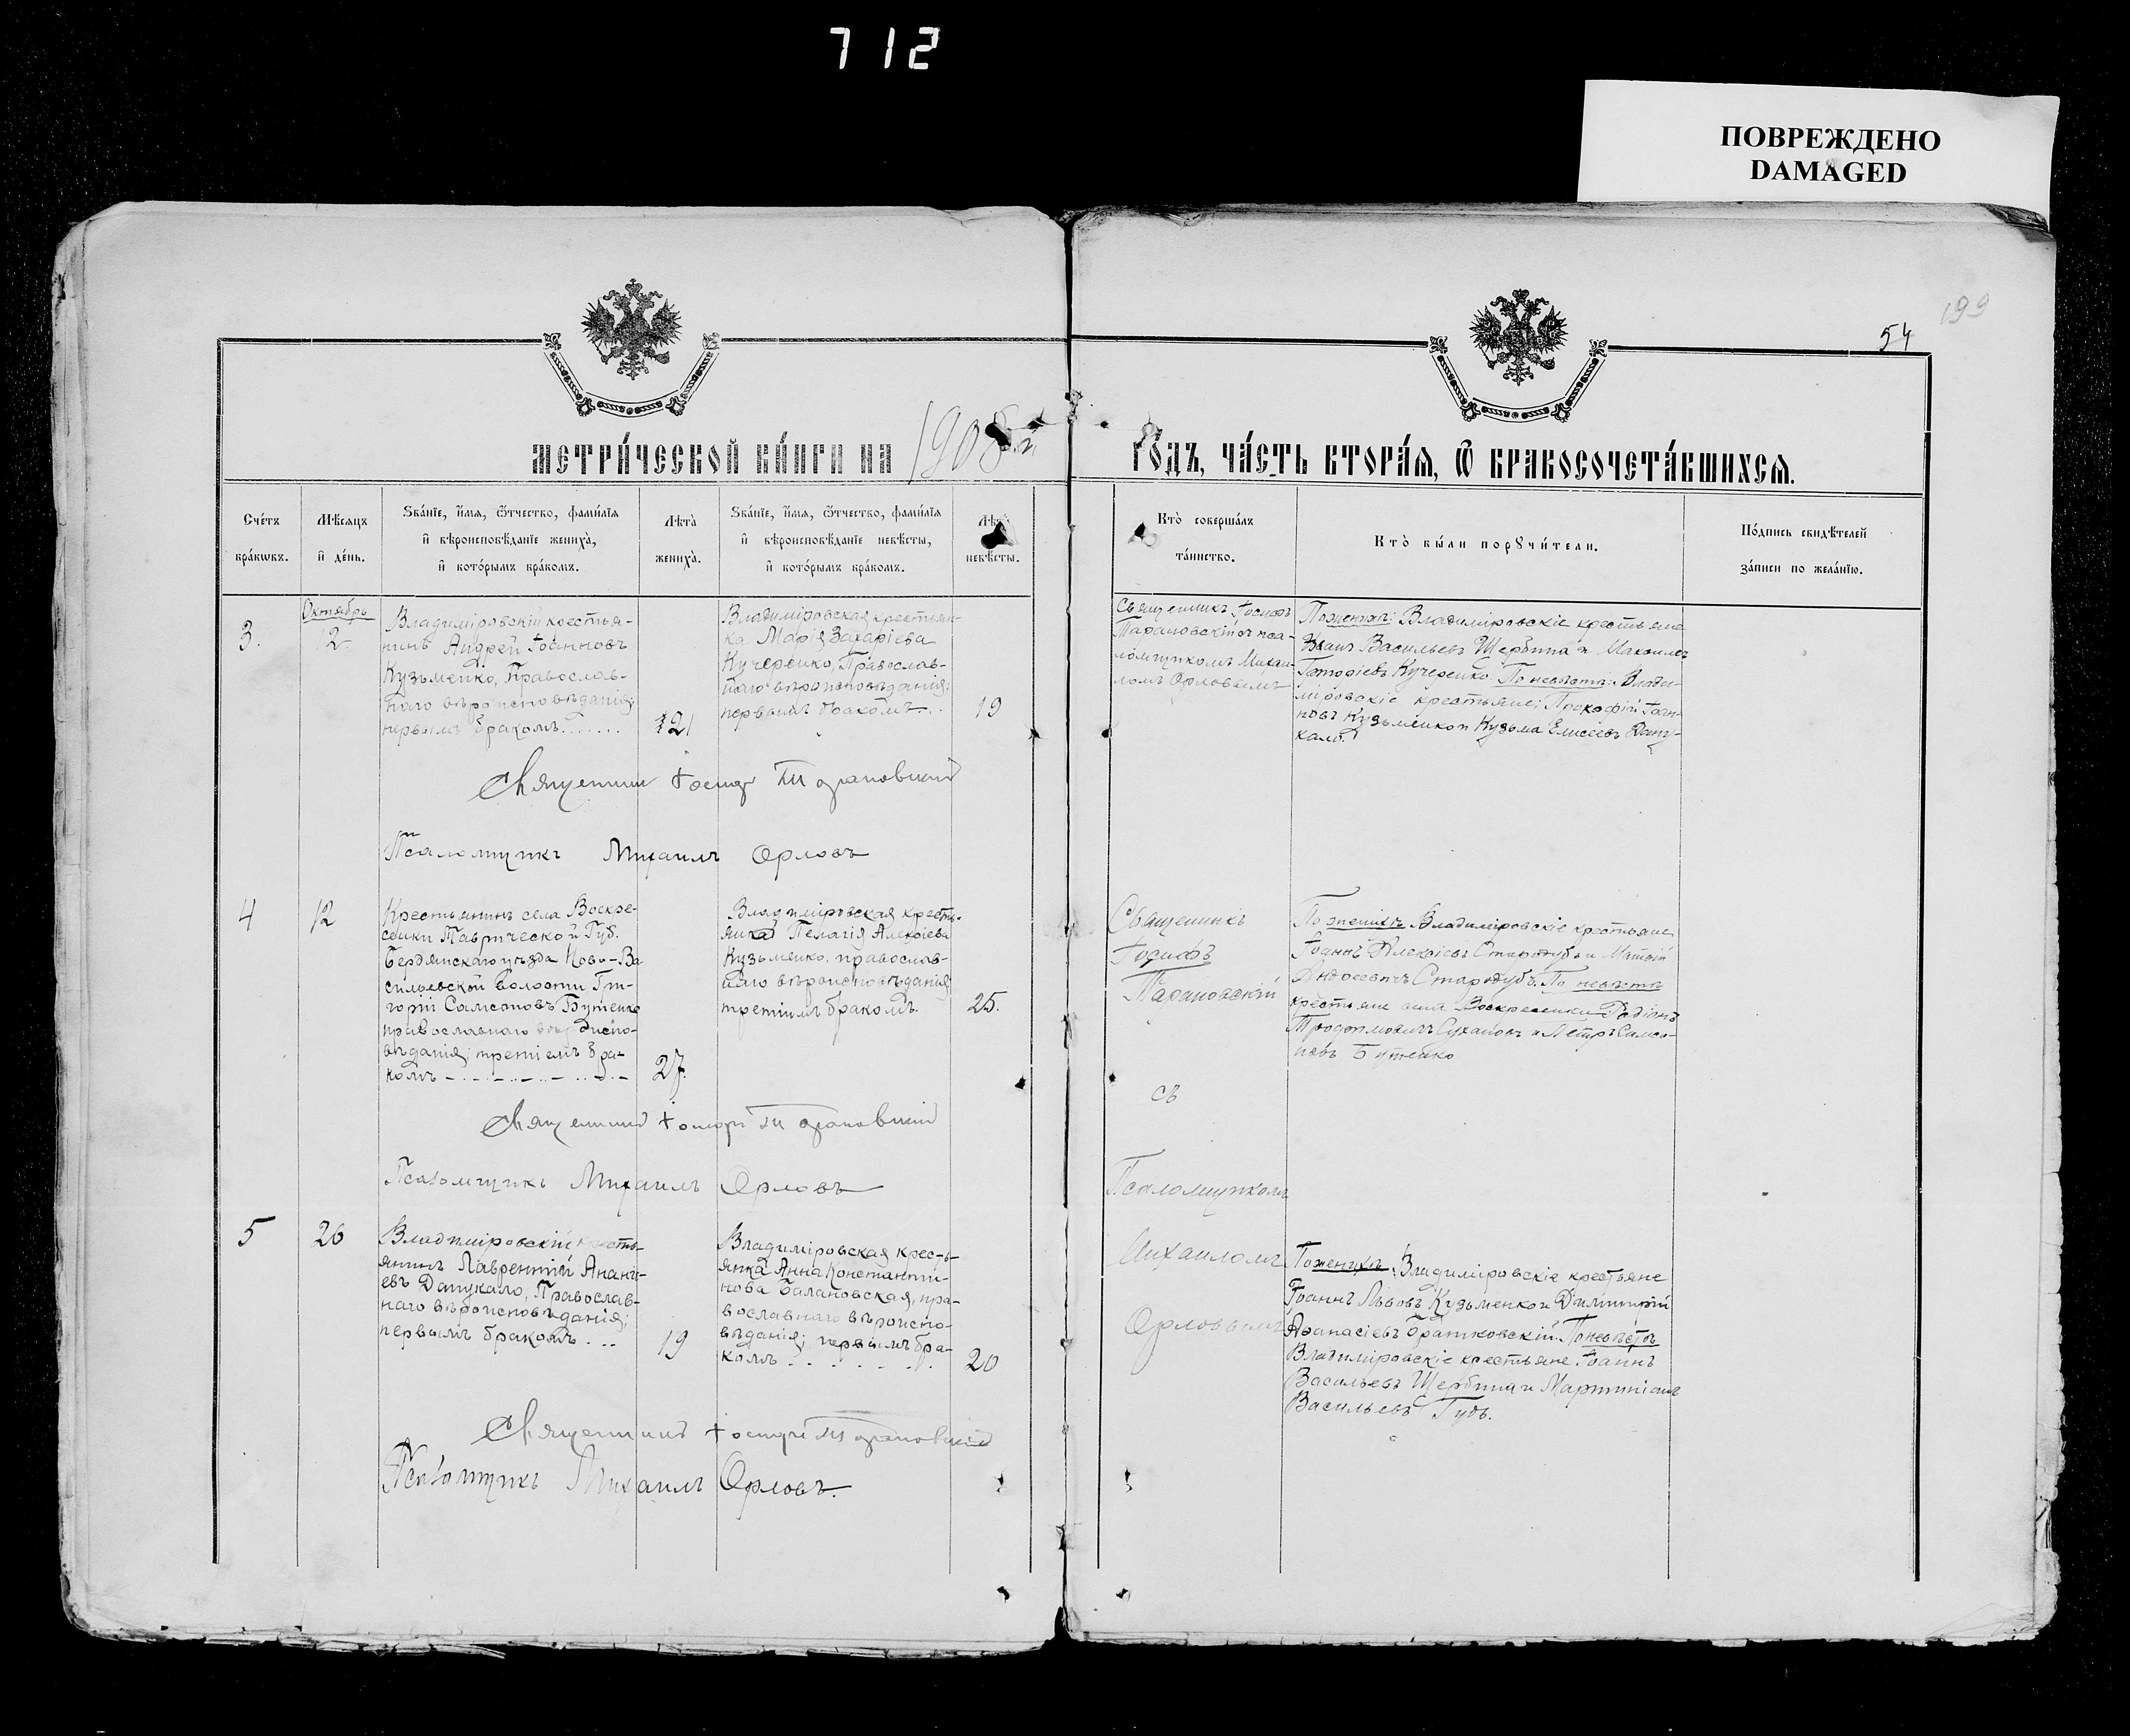 712
ПОВРЕЖДЕНО
DAMAGED
199
54
МЕТРИ́ЧЕСКОЙ КНИ́ГИ НА 1908 г.
ГО́ДЪ, ЧА́СТЬ ВТОРА́Я, Ѿ БРАКОСОЧЕТА́ВШИХСЯ.
Сче́тъ
бра́кѡвъ.
Мѣ́сяцъ
и҆ де́нь.
Ѕва́нїе, и҆́мя, ѻ҆́тчество, фами́лїя
и҆ вѣроисповѣ́данїе жениха̀,
и҆ кото́рымъ бра́комъ.
Лѣ́та
жениха̀.
Ѕва́нїе, и҆́мя, ѻ҆́тчество, фами́лїя
и҆ вѣроисповѣ́данїе невѣ́сты,
и҆ кото́рымъ бра́комъ.
Лѣ́та
невѣ́сты.
Кто̀ соверша́лъ
та́инство.
Кто̀ бы́ли порꙋчи́тели.
По́дпись свидѣ́телей
за́писи по жела́нїю.
3.
Октябрь
12
Владимірскій крестья-
нинъ Андрей Іоанновъ
Кузьменко, Православ-
наго вѣроисповѣданія;
первымъ бракомъ......
21
Владиміровская крестьян-
ка Марія Захаріева
Кучеренко, Православ-
наго вѣроисповѣданія;
первымъ бракомъ...
19
Священникъ Іосифъ
Тарановскій съ пса-
ломщикомъ Михаи-
ломъ Орловымъ
По женихѣ: Владиміровскіе крестьяне
Иванъ Васильевъ Щербина и Максимъ
Кучеренко. По невѣстѣ: Влади-
міровскіе крестьяне; Прокофій Іоан-
новъ Кузьменко и Кузьма Елисеевъ Дацу-
кало.
Священникъ Іосифъ Тарановскій
Псаломщикъ Михаилъ Орловъ
4
12
Крестьянинъ села Воскре-
сенки Таврической Губ.
Бердянскаго уѣзда Ново-Ва
сильевской волости Гри-
горій Самсоновъ Бутенко
православнаго вѣроиспо-
вѣданія; третіемъ бра-
комъ
27.
Владиміровская кресть-
янка Пелагія Алексіева
Кузьменко, православ-
наго вѣроисповѣданія
третіимъ бракомъ.
25.
Священникъ
Іосифъ
Тарановскій
съ
Псаломщикомъ
Михаиломъ
Орловымъ
По женихѣ Владиміровскіе крестьяне
Іоаннъ Алексіевъ Стародубъ и Матѳій
Андреевичъ Стародубъ. По невѣстѣ
крестьяне села Воскресенки Родіонъ
Сухановъ и Петръ Самсо-
новъ Бутенко
Священникъ Іосифъ Тарановскій
Псаломщикъ Михаилъ Орловъ
5
26
Владиміровскій кресть-
янинъ Лаврентій Анані-
евъ Дацукало, Православ-
наго вѣроисповѣданія;
первымъ бракомъ...
19
Владиміровская кресть-
янка Анна Константи-
нова Балановская, пра-
вославнаго вѣроиспо-
вѣданія; первымъ бра-
комъ.......
20
По женихѣ: Владиміровскіе крестьяне
Іоаннъ Львовъ Кузьменко и Димитрій
Аѳанасіевъ Братковскій. По невѣстѣ
Владиміровскіе крестьяне Іоаннъ
Васильевъ Щербина и Мартиніанъ
Васильевъ Гудь.
Священникъ Іосифъ Тарановскій
Псаломщикъ Михаилъ Орловъ.